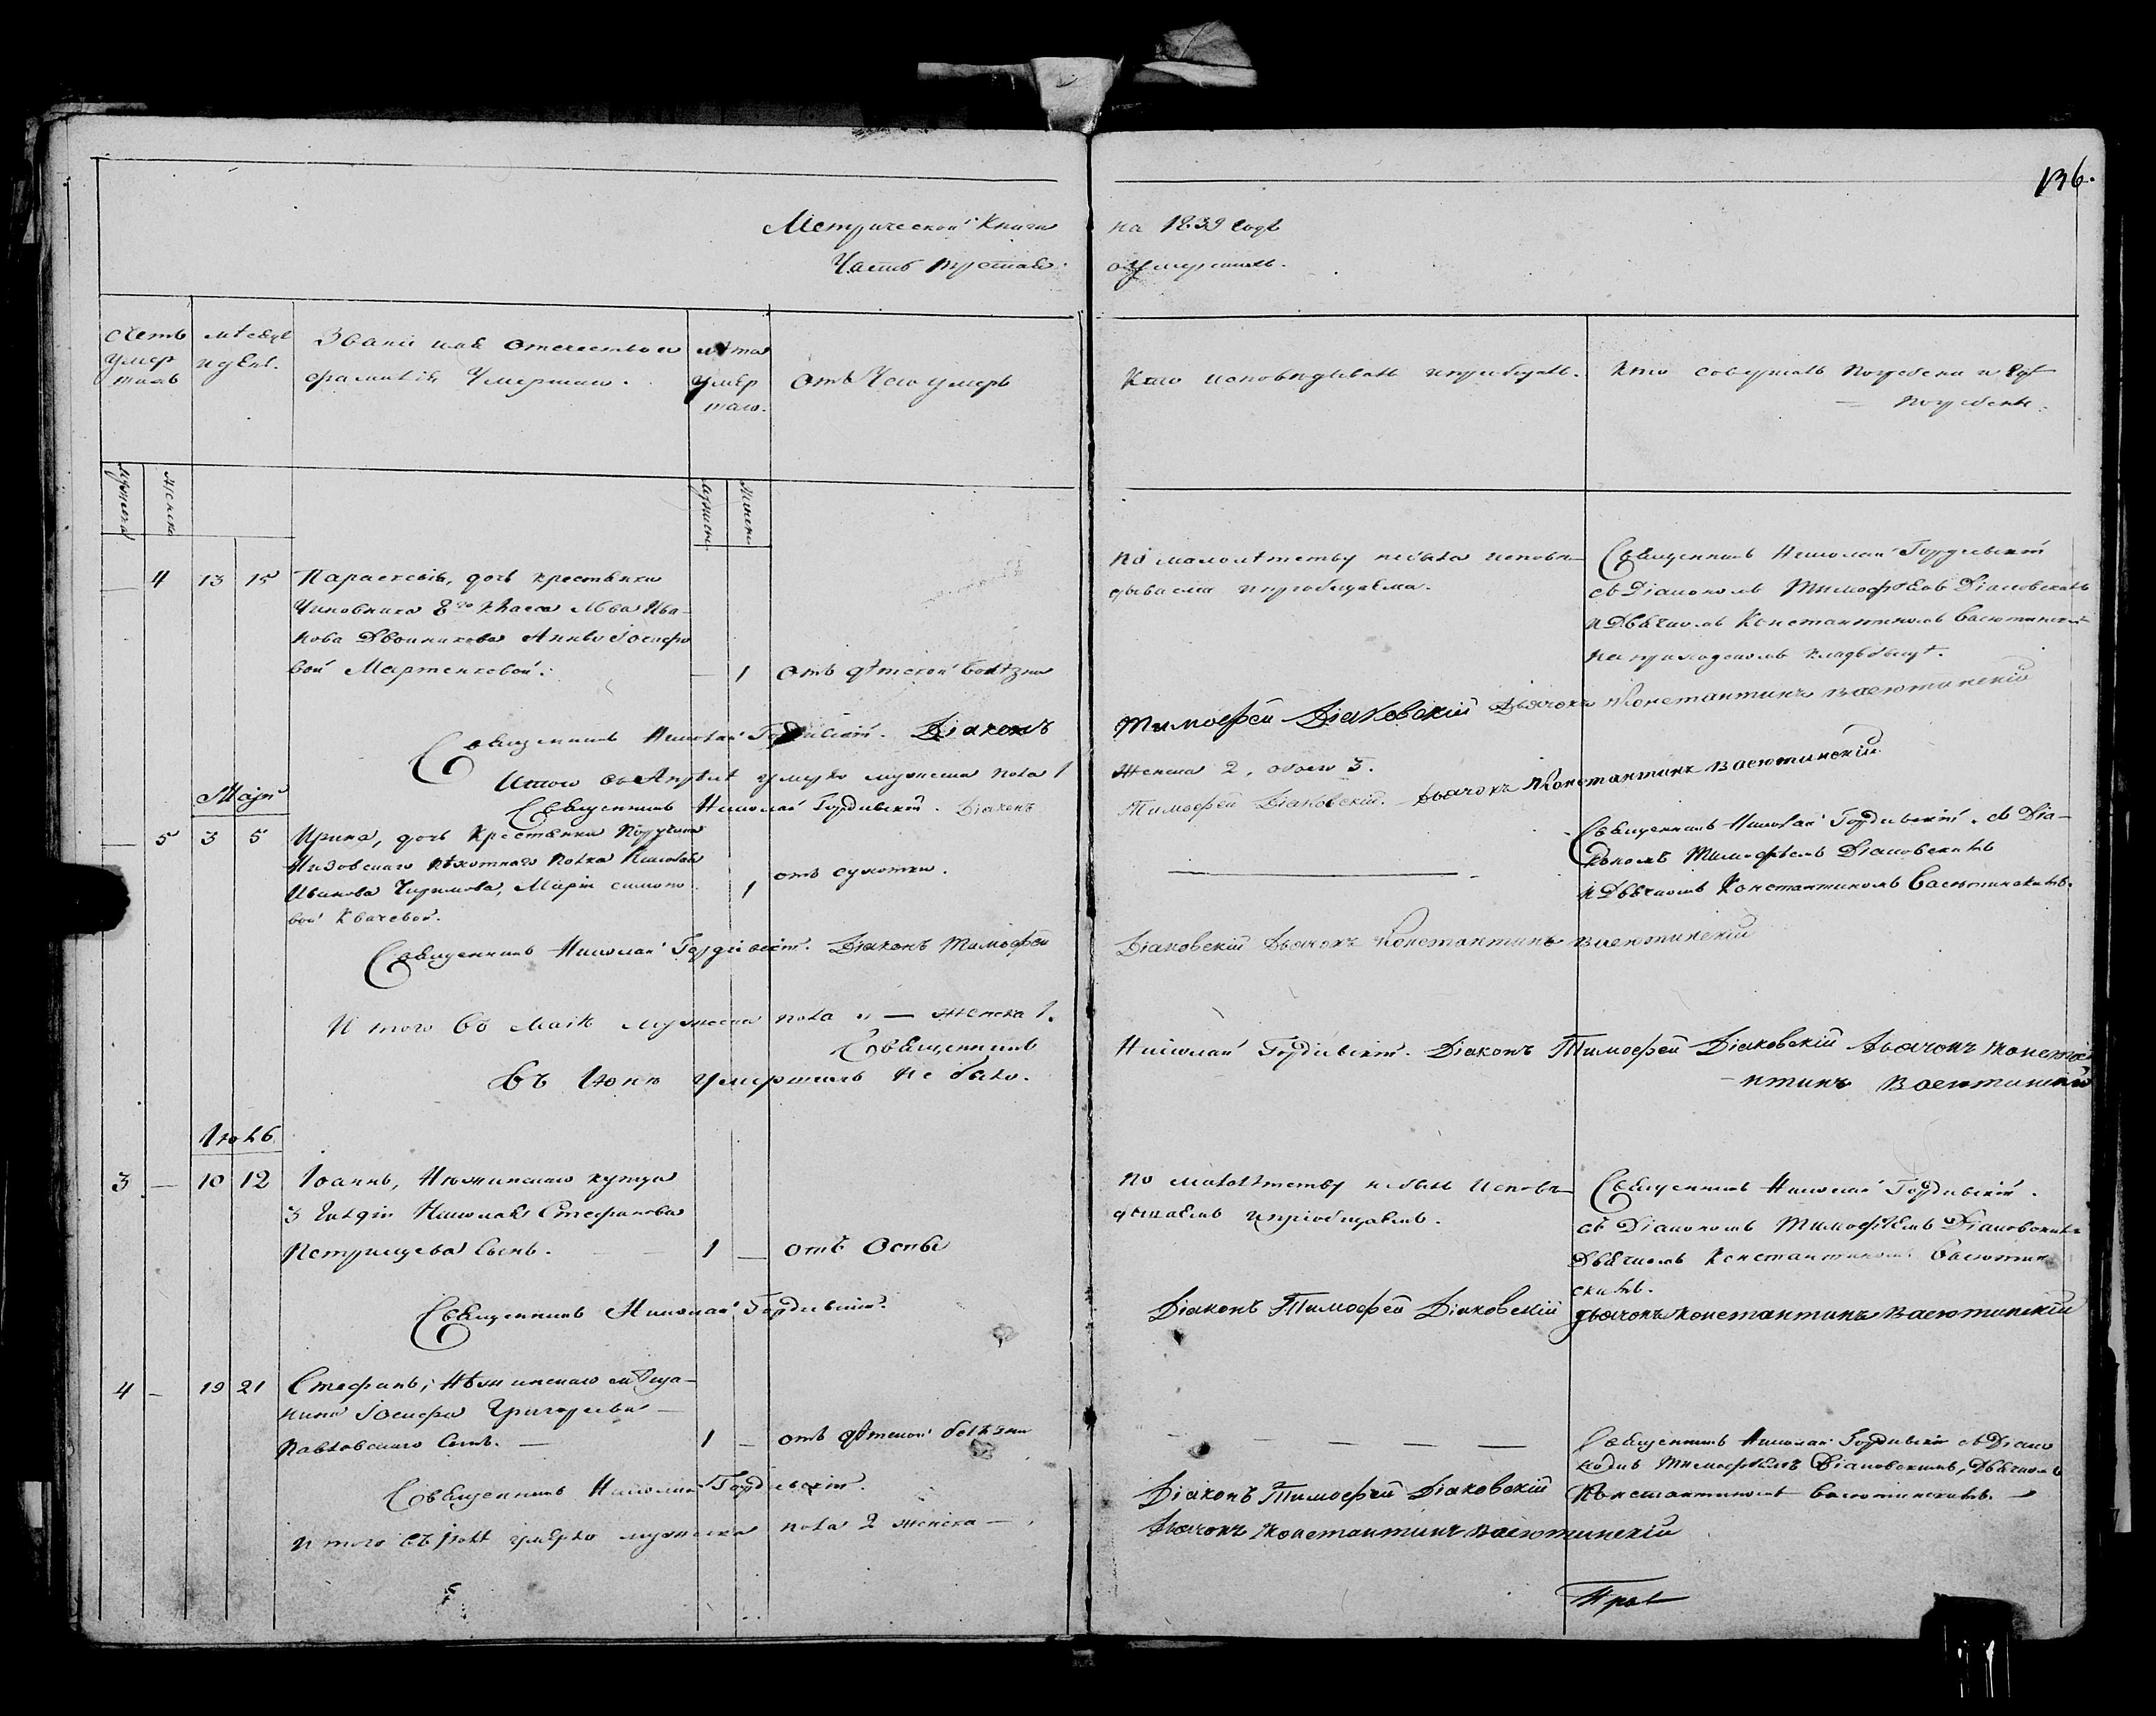 136.
Метрической Книги на 1839 годъ
Часть третая. о умершихъ.
счетъ умер шихъ
мѣсяцъ и день.
Званіе имя отечество и фамилія Умершаго.
лѣта умер шаго.
отъ Чего умеръ
Кто исповѣдывалъ и пріобщалъ.
Кто совершалъ погребеніе и гдѣ погребены.
мужеска
женска
мужеска
женска
— 4 13 15 Параскевія, дочь крестянки
Чиновника 8го класа Льва Ива-
нова Двоиникова Анны Іосифо
вой Мартенковой. — 1 отъ дѣтской болѣзни
по малолѣтству небыла исповѣ-
дываема и пріобщаема.
Священникъ Николай Гордіевскій
съ Діакономъ Тимофѣемъ Діаковскимъ
и Дьячкомъ Константиномъ Васютинскимъ
на приходскомъ кладбищѣ.
Священникъ Николай Гордіевскій. Діаконъ Тимофей Діаковскій Дьячокъ Константинъ Васютинскій
Итого въ Апрѣлѣ умерло мужеска пола 1 женска 2, обоего 3.
Священникъ Николай Гордіевскій. Діаконъ Тимофей Діаковскій. Дьячокъ Константинъ Васютинскій
Маія
— 5 3 5 Ирина, дочь Крестянки Поручика
Низовскаго пѣхотнаго полка Николая
Иванова, Маріи Симоно
вой Квачевой. 1 отъ сухотки.
Священникъ Николай Гордіевскій. съ Діа-
кономъ Тимофѣемъ Діаковскимъ
и Дьячкомъ Константиномъ Васютинскимъ.
Священникъ Николай Гордіевскій. Діаконъ Тимофей Діаковскій Дьячокъ Константинъ Васютинскій
И того въ Маіѣ мужеска пола „ — женска 1.
Священникъ Николай Гордіевскій. Діаконъ Тимофей Діаковскій Дьячокъ Конста
нтинъ Васютинскій
Въ Іюнѣ умершихъ не было.
Іюль
3 — 10 12 Іоаннъ, Нѣжинскаго купца
3 гилдіи Николая Стефанова
Петрищева Сынъ. 1 — отъ Оспы
по малолѣтству небылъ исповѣ-
дываемъ и пріобщаемъ.
Священникъ Николай Гордіевскій.
съ Діакономъ Тимофѣемъ Діаковскимъ
Дьячкомъ Константиномъ Васютин
скимъ.
Священникъ Николай Гордіевскій. Діаконъ Тимофей Діаковскій дьячокъ Константинъ Васютинскій
4 — 19 21 Стефанъ, Нѣжинскаго мѣща-
нина Іосифа Григорьева
Павловскаго Сынъ. — 1 — отъ дѣтской болѣзни
— — — — —
Священникъ Николай Гордіевскій съ Діако
номъ Тимофѣемъ Діаковскимъ, Дьячкомъ
Константиномъ Васютинскимъ. —
Священникъ Николай Гордіевскій. Діаконъ Тимофей Діаковскій
Дьячокъ Константинъ Васютинскій
И того въ Іюлѣ умерло мужеска пола 2 женска — .